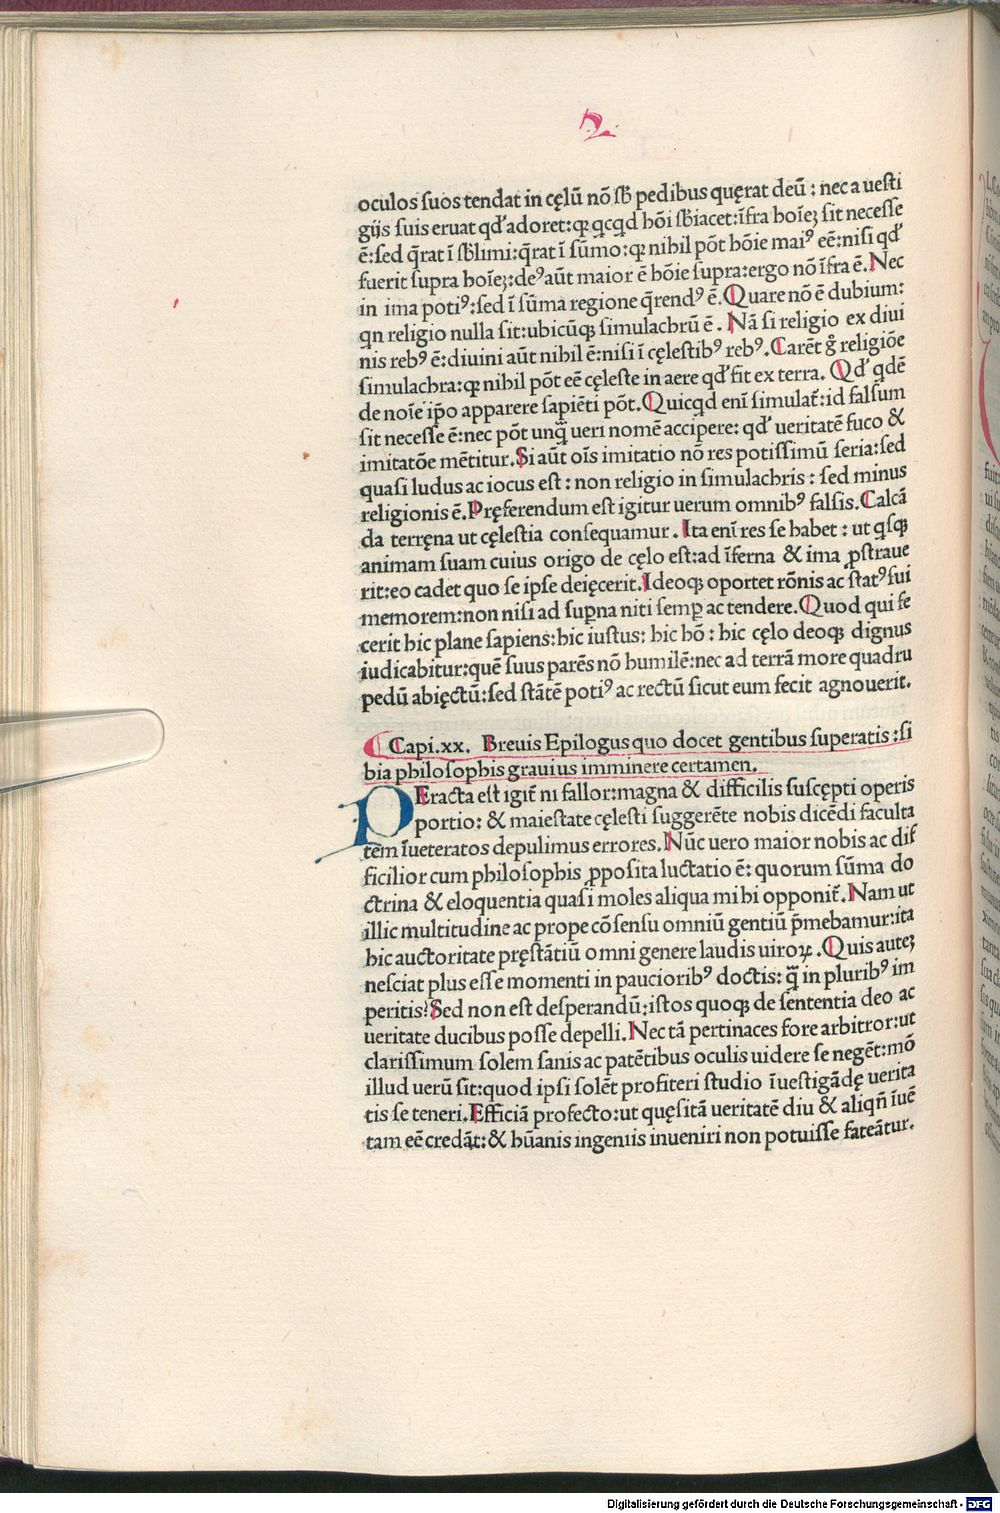 2.
oculos suos tendat in cęlū nō sb̄ pedibus quęrat deū : nec a uesti
gijs suis eruat qd' adoret:qꝫ qcqd hōi sb̄iacet:īfra hoīeꝫ sit necesse
ē:sed q̄rat ī sb̄limi:q̄rat ī sūmo:qꝫ nihil pōt hōie maiꝰ eē:nisi qd'
fuerit supra hoīeꝫ:deꝰ aūt maior ē hōie supra:ergo nō īfra ē.Nec
in ima potiꝰ:sed ī sūma regione q̄rendꝰ ē.Quare nō ē dubium:
qn religio nulla sit:ubicūqꝫ simulachrū ē. Nā si religio ex diui
nis rebꝰ ē:diuini aūt nihil ē:nisi ī cęlestibꝰ rebꝰ.Carēt g̊ religiōe
simulachra:qꝫ nihil pōt eē cęleste in aere qd' fit ex terra. Qd' qdē
de noīe ip̄o apparere sapiēti pōt.Quicqd enī simulat̄:id falsum
sit necesse ē:nec pōt unq̄ ueri nomē accipere: qd' ueritatē fuco &
imitatōe mētitur.Si aūt oīs imitatio nō res potissimū seria:sed
quasi ludus ac iocus est : non religio in simulachris : sed minus
religionis ē.Pręferendum est igitur uerum omnibꝰ falsis.Calcā
da terręna ut cęlestia consequamur. Ita enī res se habet : ut qsqꝫ
animam suam cuius origo de cęlo est:ad īferna & ima ꝓstraue
rit:eo cadet quo se ipse deięcerit.Ideoqꝫ oportet rōnis ac statꝰ sui
memorem:non nisi ad sup̱na niti semp̱ ac tendere.Quod qui fe
cerit hic plane sapiens:hic iustus: hic hō : hic cęlo deoqꝫ dignus
iudicabitur:quē suus parēs nō humilē:nec ad terrā more quadru
pedū abięctū:sed stātē potiꝰ ac rectū sicut eum fecit agnouerit.
¶ Capi.xx. Breuis Epilogus quo docet gentibus superatis :si
bia philosophis grauius imminere certamen.
PEracta est igit̄ ni fallor:magna & difficilis suscępti operis
portio: & maiestate cęlesti suggerēte nobis dicēdi faculta
tem īueteratos depulimus errores.Nūc uero maior nobis ac dif
ficilior cum philosophis ꝓposita luctatio ē: quorum sūma do
ctrina & eloquentia quasi moles aliqua mihi opponit̄.Nam ut
illic multitudine ac prope cōsensu omniū gentiū p̄mebamur:ita
hic auctoritate pręstātiū omni genere laudis uiroꝝ.Quis auteꝫ
nesciat plus esse momenti in paucioribꝰ doctis: q̄ in pluribꝰ im
peritis?Sed non est desperandū:istos quoqꝫ de sententia deo ac
ueritate ducibus posse depelli.Nec tā pertinaces fore arbitror:ut
clarissimum solem sanis ac patētibus oculis uidere se negēt:mō
illud uerū sit:quod ipsi solēt profiteri studio īuestigādę uerita
tis se teneri.Efficiā profecto:ut quęsitā ueritatē diu & aliqn̄ īuē
tam eē credāt:& hūanis ingeniis inueniri non potuisse fateātur.
Digitalisierung gefördert durch die Deutsche Forschungsgemeinschaft - DFG